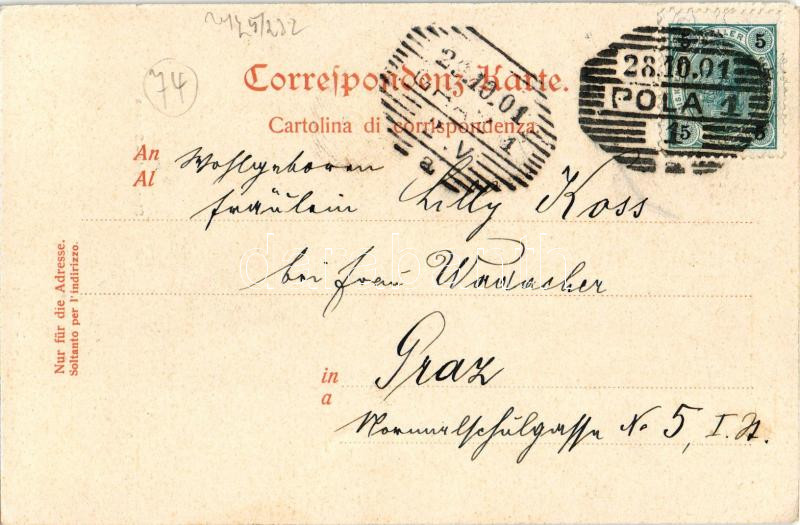 74
Correspondenz-Karte.
Cartolina di corrispondenza.
28.10.01
POLA 1
28.10.01
POLA 1
V
a
5
5
An Wohlgeboren
Al
Fräulein Lilly Koss
bei Frau Wadacher
in Graz
a
Normalschulgasse No 5, I. St.
Nur für die Adresse.
Soltanto per l'indirizzo.